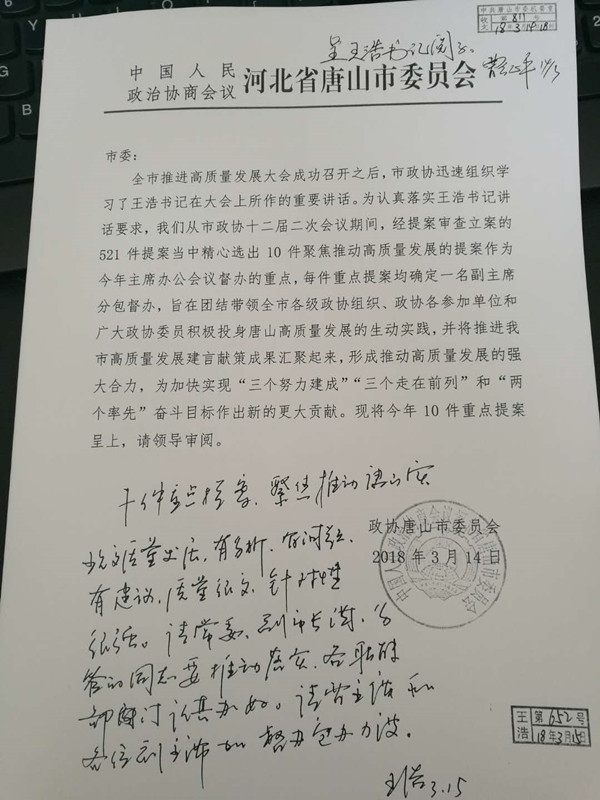 中共唐山市委机要室
收文 第817号
18年3月14日18时
呈王浩书记阅示
中国人民
政治协商会议 河北省唐山市委员会
市委：
全市推进高质量发展大会成功召开之后，市政协迅速组织学
习了王浩书记在大会上所作的重要讲话。为认真落实王浩书记讲
话要求，我们从市政协十二届二次会议期间，经提案审查立案的
521 件提案当中精心选出 10 件聚焦推动高质量发展的提案作为
今年主席办公会议督办的重点，每件重点提案均确定一名副主席
分包督办，旨在团结带领全市各级政协组织、政协各参加单位和
广大政协委员积极投身唐山高质量发展的生动实践，并将推进我
市高质量发展建言献策成果汇聚起来，形成推动高质量发展的强
大合力，为加快实现“三个努力建成”“三个走在前列”和“两
个率先”奋斗目标作出新的更大贡献。现将今年 10 件重点提案
呈上，请领导审阅。
十件重点提案、紧盯推动唐山
政协唐山市委员会
2018 年 3 月 14 日
有分析、有问题、
有建议，质量很高、针对性
很强。请常委、副市长
的同志要推动落实、各职能
部门认真办好。请 主席和
各位副主席 督办
王浩 3.15
王浩 第652号
18年3月15日